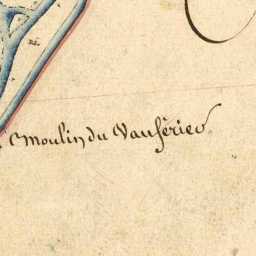 Moulin du Vauferier